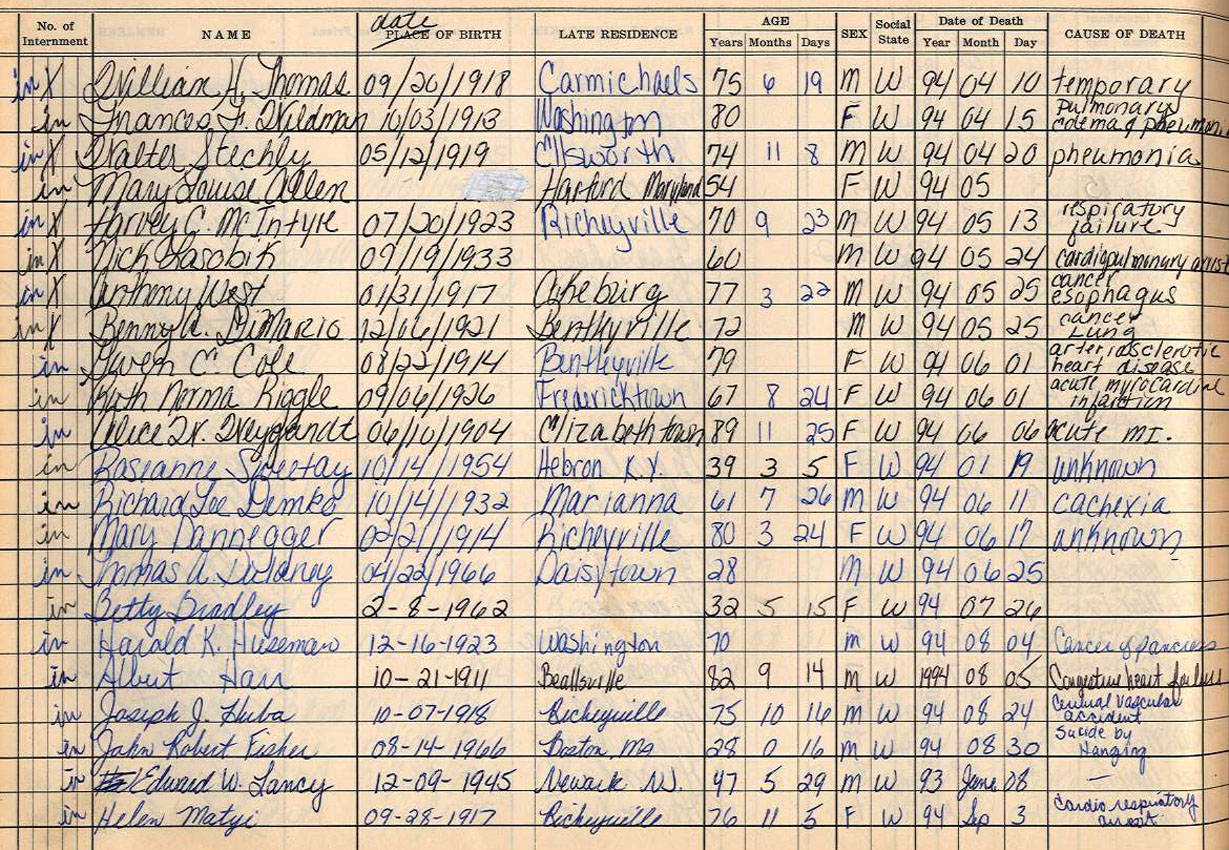 No. of Internment NAME date PLACE OF BIRTH LATE RESIDENCE AGE Years Months Days SEX Social State Date of Death Year Month Day CAUSE OF DEATH
in X William H. Thomas 09/20/1918 Carmichaels 75 6 19 M W 94 04 10 temporary
in Frances F. Wildman 10/03/1913 Washington 80 F W 94 04 15 pulmonary edema & pneumonia
in X Walter Stechly 05/12/1919 Ellsworth 74 11 8 M W 94 04 20 pneumonia
in Mary Louise Allen Harford Maryland 54 F W 94 05
in X Harvey C. McIntyre 07/20/1923 Richeyville 70 9 23 M W 94 05 13 respiratory failure
in X Nick 09/19/1933 60 M W 94 05 24 cardiopulmonary arrest
in X Anthony West 01/31/1917 Cokeburg 77 3 22 M W 94 05 25 cancer esophagus
in X Benny A. DiMarzio 12/06/1921 Bentleyville 72 M W 94 05 25 cancer Lung
in Gwen C. Cole 08/22/1914 Bentleyville 79 F W 94 06 01 arteriosclerotic heart disease
in Ruth Norma Riggle 09/06/1926 Fredericktown 67 8 24 F W 94 06 01 acute myrocardine infarction
in Alice W. Weygandt 06/10/1904 Elizabethtown 89 11 25 F W 94 06 06 acute M.I.
in Roseanne 10/14/1954 Hebron K.Y. 39 3 5 F W 94 01 19 unknown
in Richard Lee Demko 10/14/1932 Marianna 61 7 26 M W 94 06 11 cachexia
in Mary Dannegger 02/21/1914 Richeyville 80 3 24 F W 94 06 17 unknown
in Thomas A. Dulaney 04/22/1966 Daisytown 28 M W 94 06 25
in Betty Bradley 2-8-1962 32 5 15 F W 94 07 26
in Harold K. Huseman 12-16-1923 Washington 70 M W 94 08 04 Cancer of pancreas
in Albert Harr 10-21-1911 Beallsville 82 9 14 M W 1994 08 05 Congestive heart failure
in Joseph J. Huba 10-07-1918 Richeyville 75 10 16 M W 94 08 24 Central vascular accident
in John Robert Fisher 08-14-1966 Boston, Ma 28 0 16 M W 94 08 30 Suicide by Hanging
in Edward W. Lancy 12-09-1945 Newark NJ. 47 5 29 M W 93 June 08 —
in Helen Matyi 09-28-1917 Richeyville 76 11 5 F W 94 Sep 3 Cardio respiratory arrest